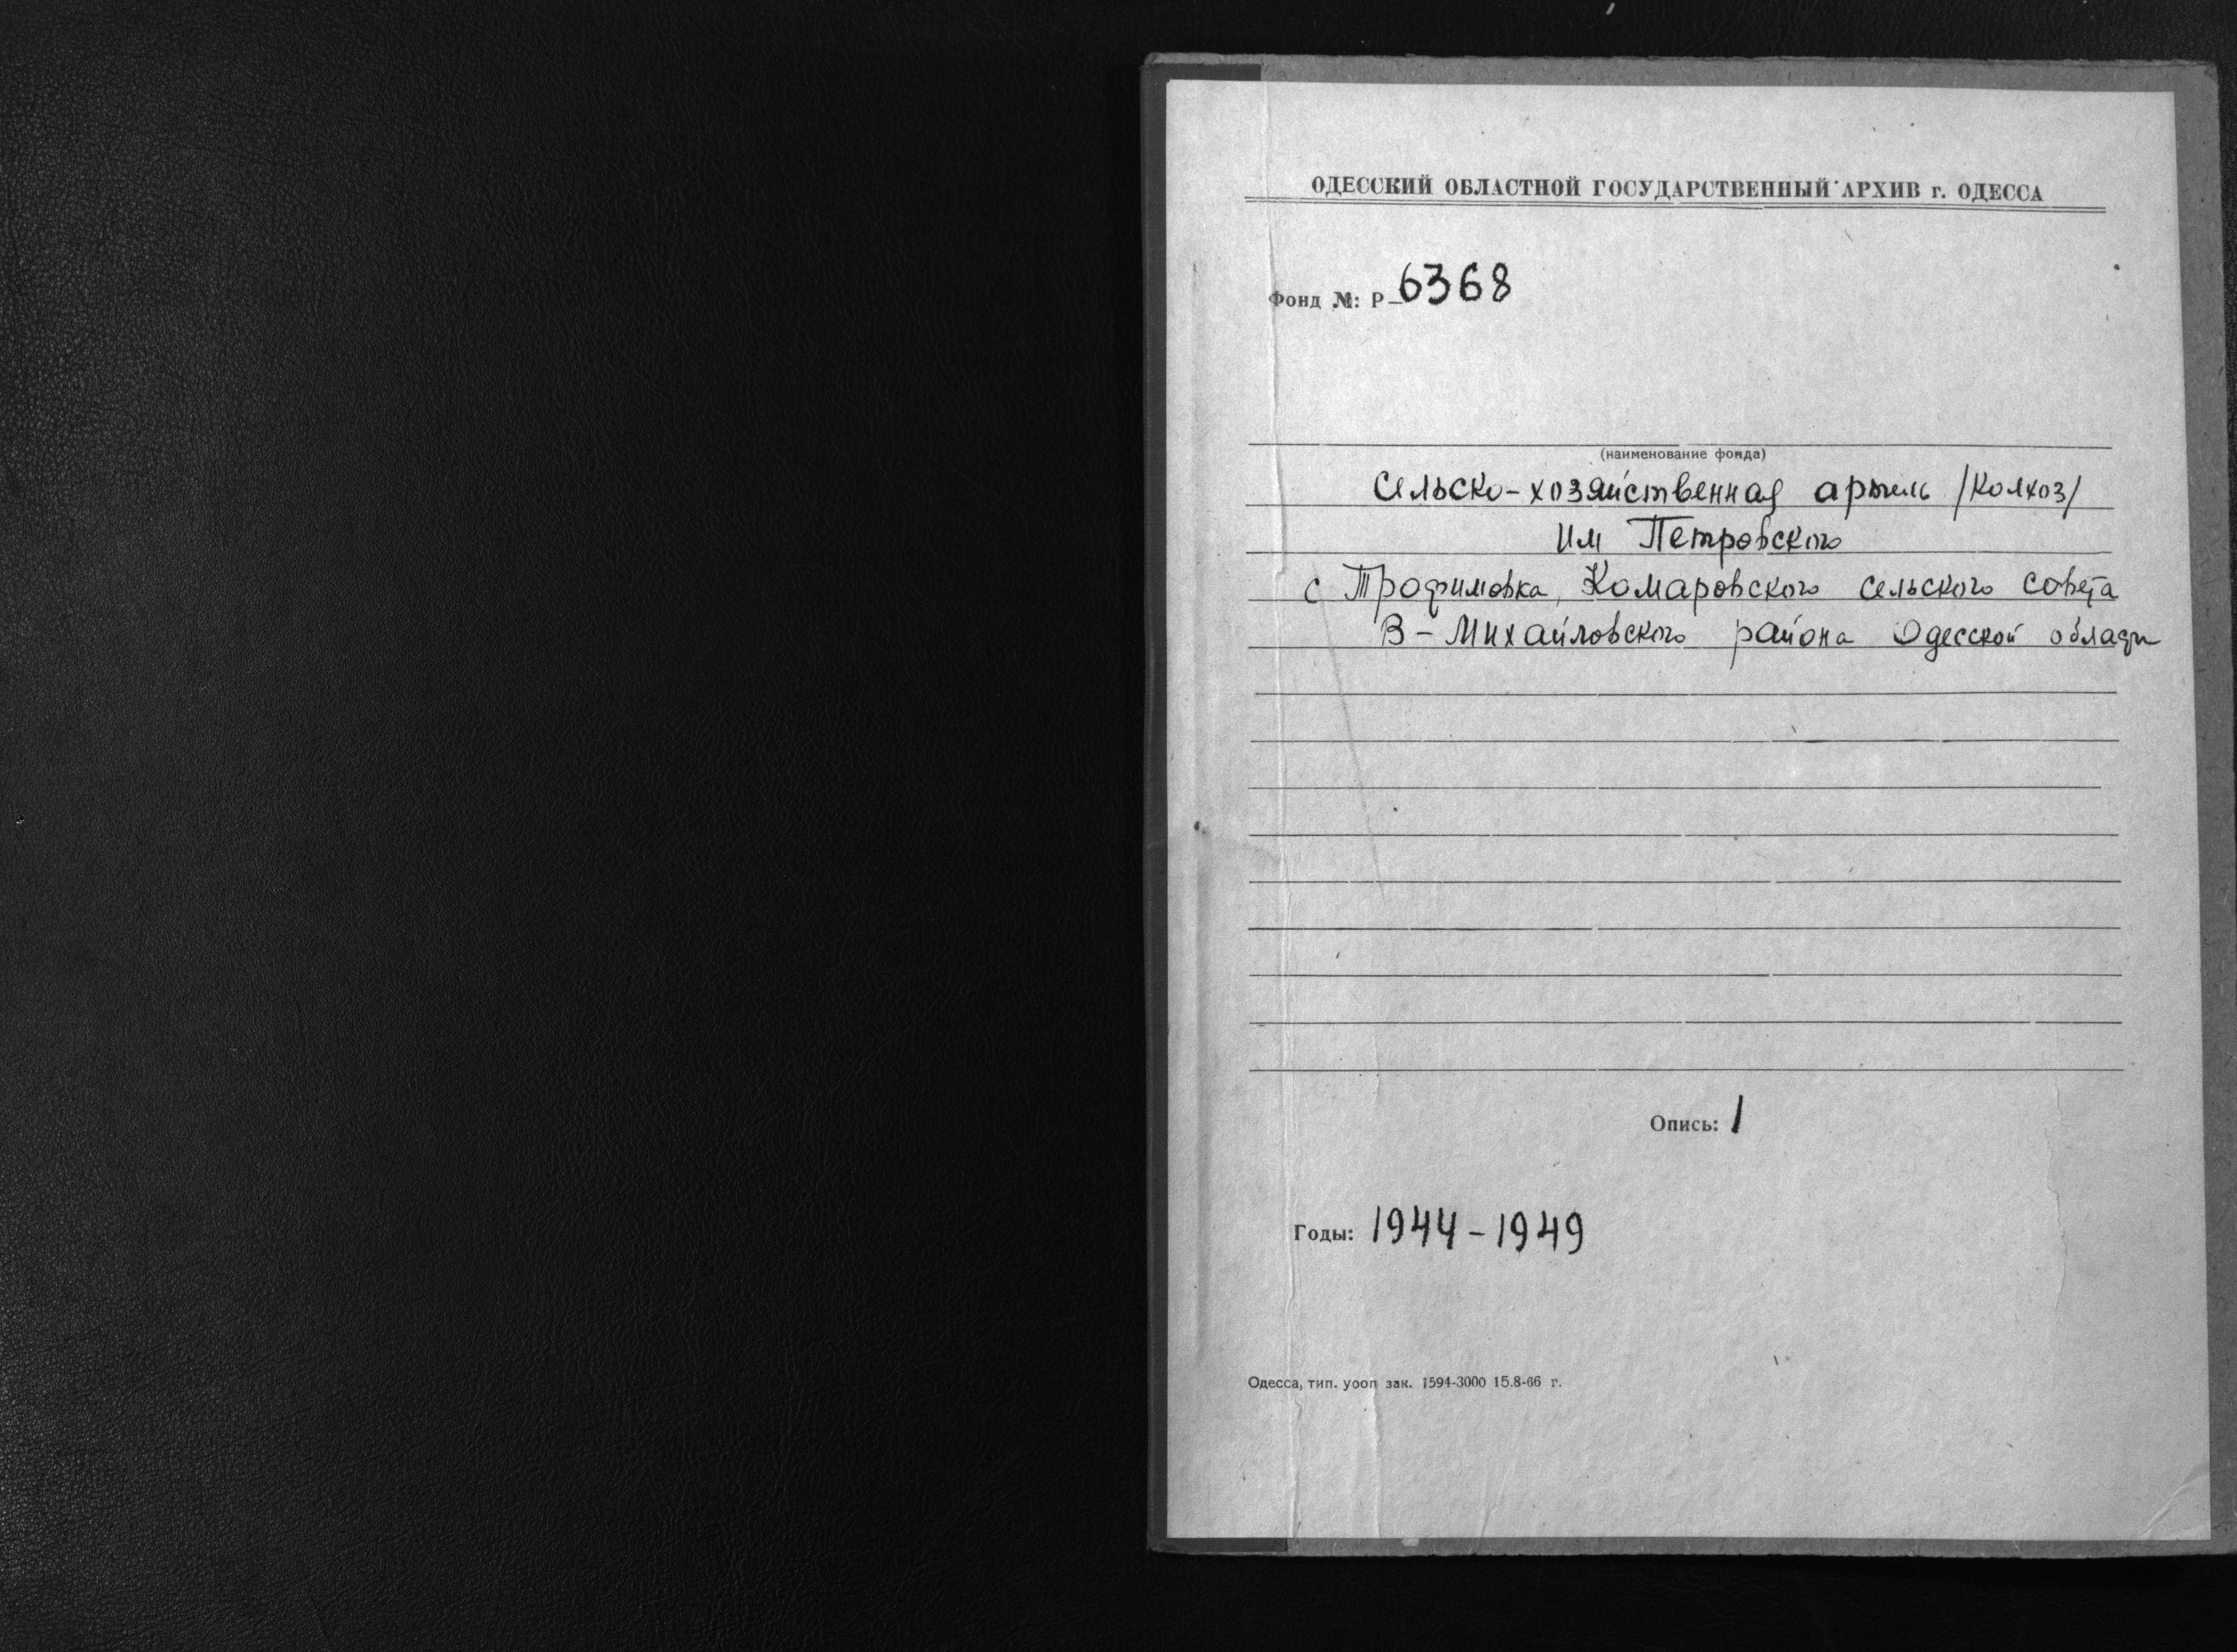 ОДЕССКИЙ ОБЛАСТНОЙ ГОСУДАРСТВЕННЫЙ АРХИВ г. ОДЕССА
Фонд №: Р-6368
(наименование фонда)
Сельско-хозяйственная артель /колхоз/
им Петровского
с Трофимовка, Комаровского сельского совета
В-Михайловского района Одесской области
Опись: 1
Годы: 1944-1949
Одесса, тип. уооп зак. 1594-3000 15.8-66 г.